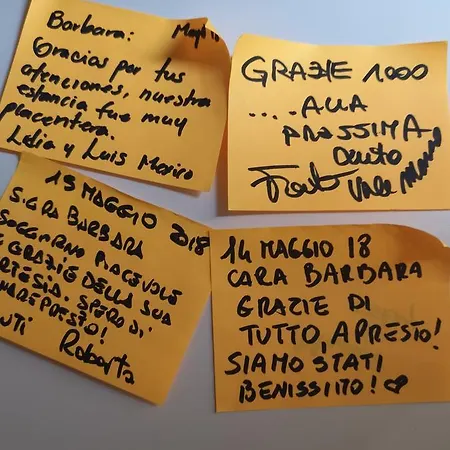 Barbara:
Gracias por tus
atenciones, nuestra
estancia fue muy
placentera.
Lidia y Luis
GRAZIE 1000
....ALLA
PROSSIMA
13 MAGGIO 2018
SIG.RA BARBARA
SOGGIORNO PIACEVOLE
E GRAZIE DELLA SUA
RTESIA. SPERO DI
NARE PRESTO!
UTI Roberta
14 MAGGIO 18
CARA BARBARA
GRAZIE DI
TUTTO, A PRESTO!
SIAMO STATI
BENISSIMO!